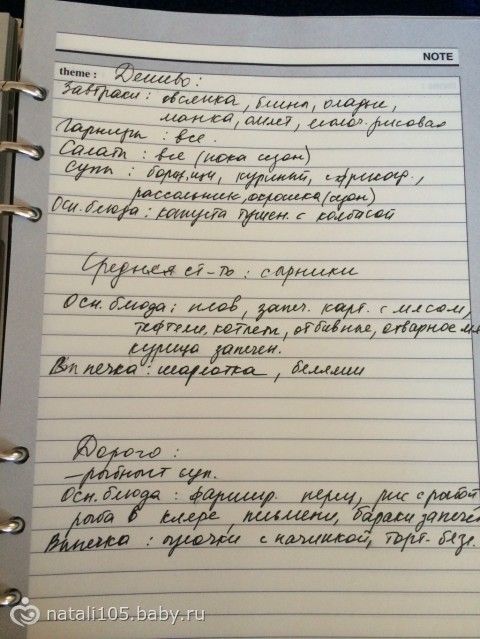 NOTE
theme : Дешево :
Завтраки : овсянка, блины, оладьи,
манка, омлет, молоч. рисовая
Гарниры : все.
Салаты : все (пока сезон)
Супы : борщ, щи, куриный, с фрикад.,
рассольник, окрошка (сезон)
Осн. блюда : капуста тушен. с колбасой
Средняя ст-ть : сырники
Осн. блюда : плов, запеч. карт. с мясом,
тефтели, котлеты, отбивные, отварное мя
курица запечен.
Выпечка : шарлотка, беляши
Дорого :
– рыбный суп.
Осн. блюда : фаршир. перец, рис с рыбой
рыба в кляре, пельмени, запечё
Выпечка : булочки с начинкой, торт-безе.
natali105.baby.ru